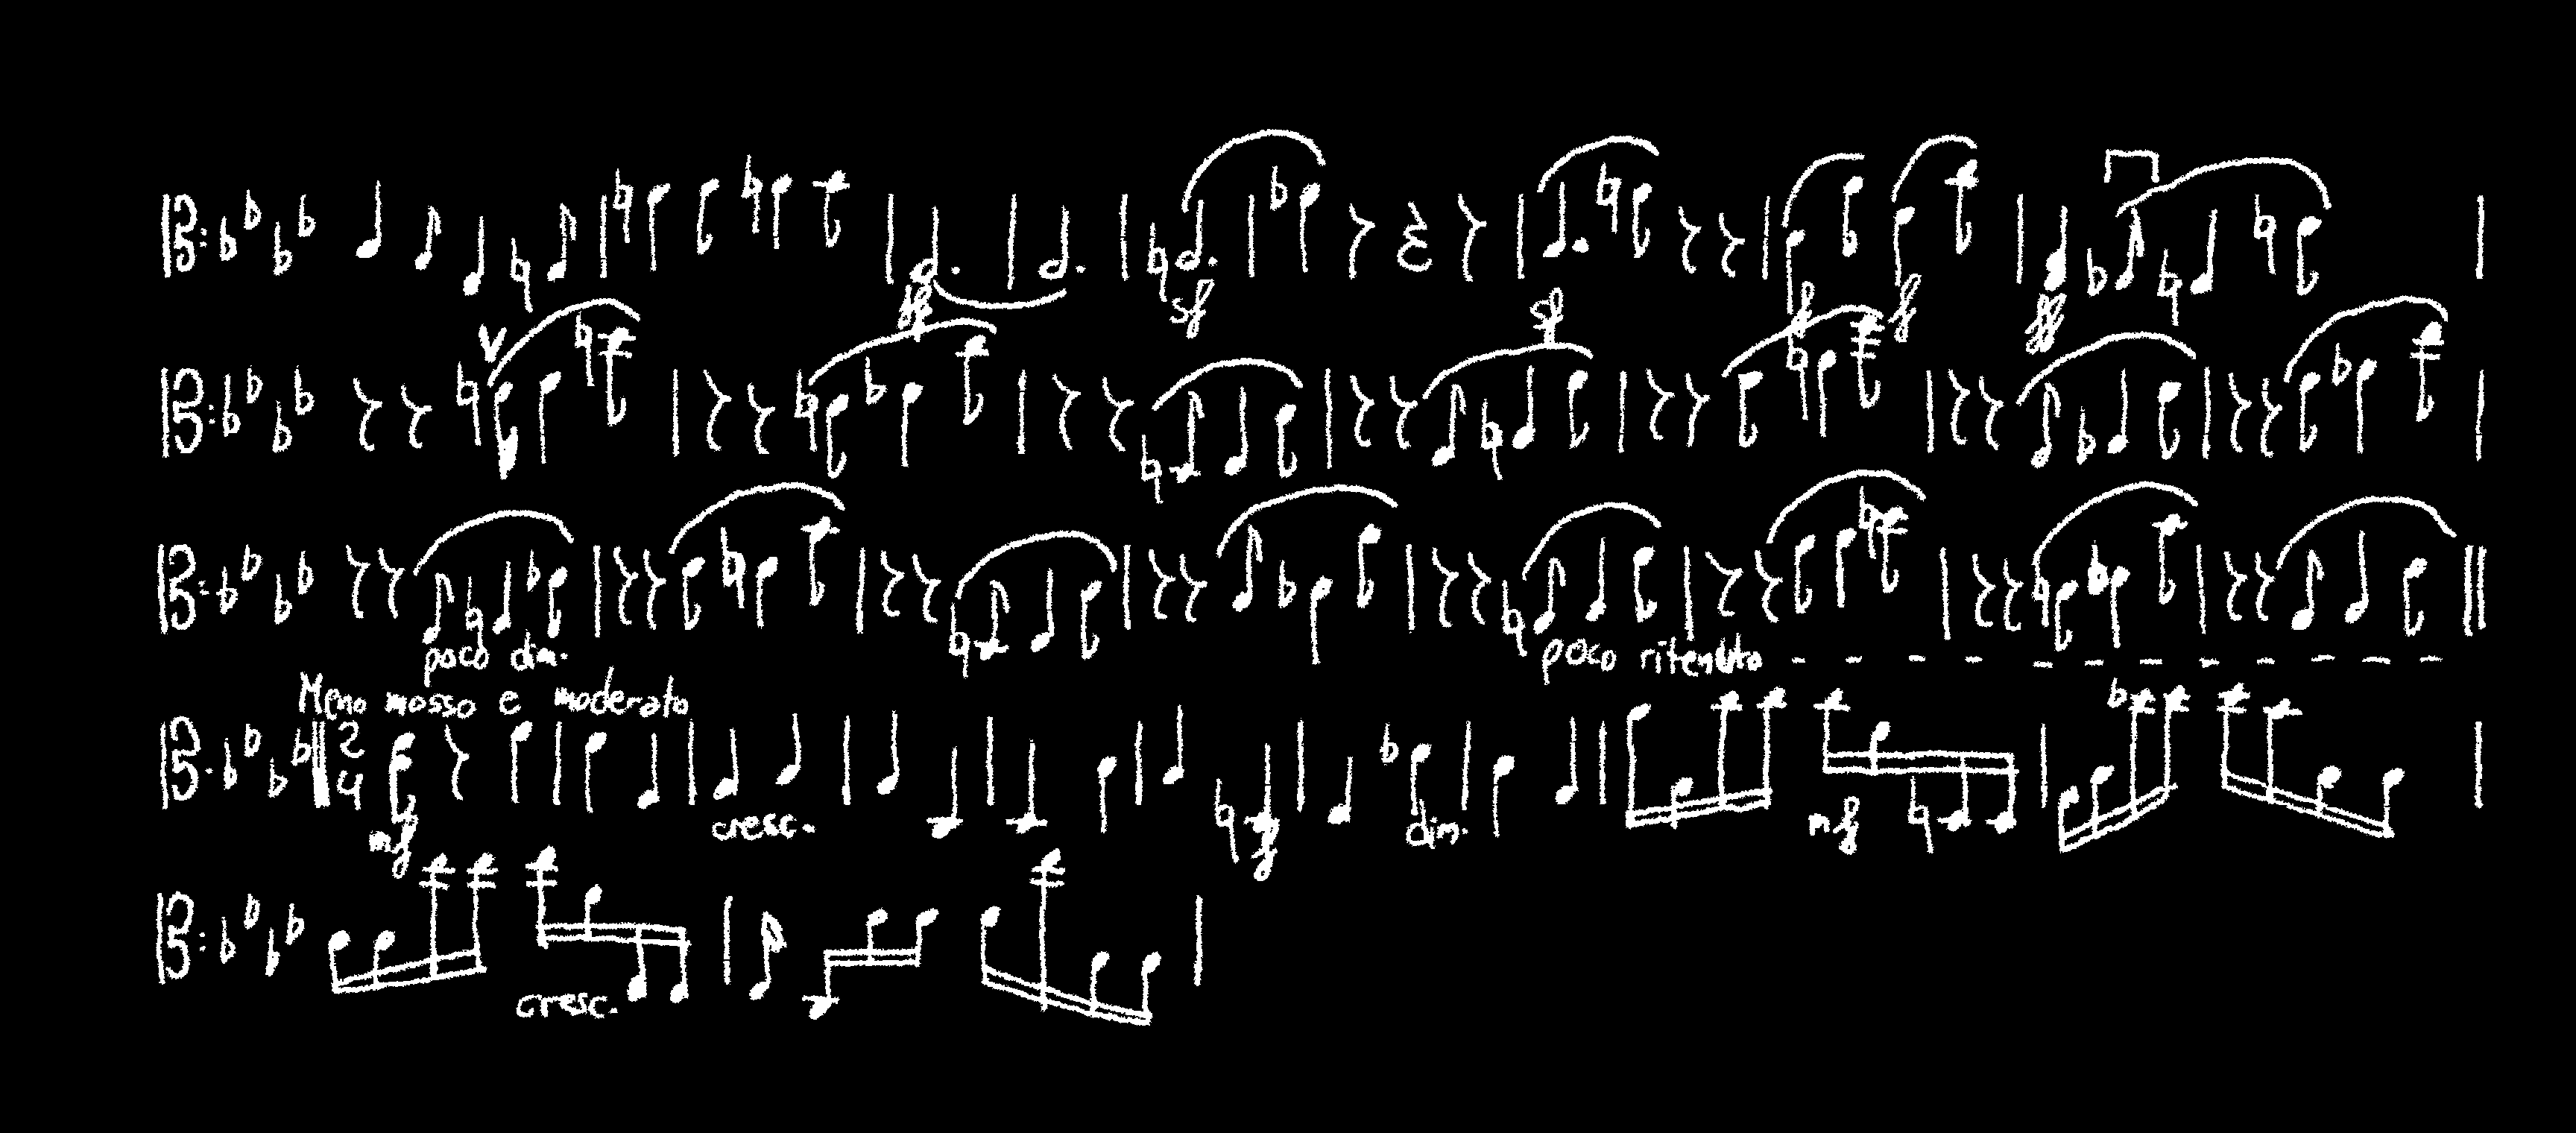 ff sf sf f f ff
poco dim. poco ritenuto
Meno mosso e moderato
2
4
mf cresc. f dim. mf
cresc.